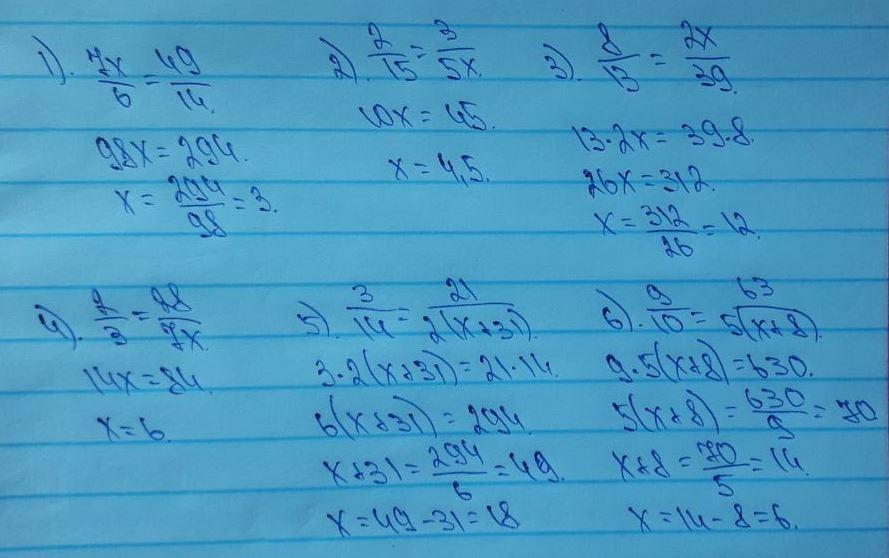 1). 7x/6 = 49/14.
98x = 294.
x = 294/98 = 3.
2). 2/15 = 3/5x.
10x = 45.
x = 4,5.
3). 8/13 = 2x/39.
13·2x = 39·8.
26x = 312.
x = 312/26 = 12.
4). 2/3 = 28/7x.
14x = 84.
x = 6.
5). 3/14 = 21/2(x+31).
3·2(x+31) = 21·14.
6(x+31) = 294.
x+31 = 294/6 = 49.
x = 49-31 = 18
6). 9/10 = 63/5(x+8).
9·5(x+8) = 630.
5(x+8) = 630/9 = 70
x+8 = 70/5 = 14.
x = 14-8 = 6.